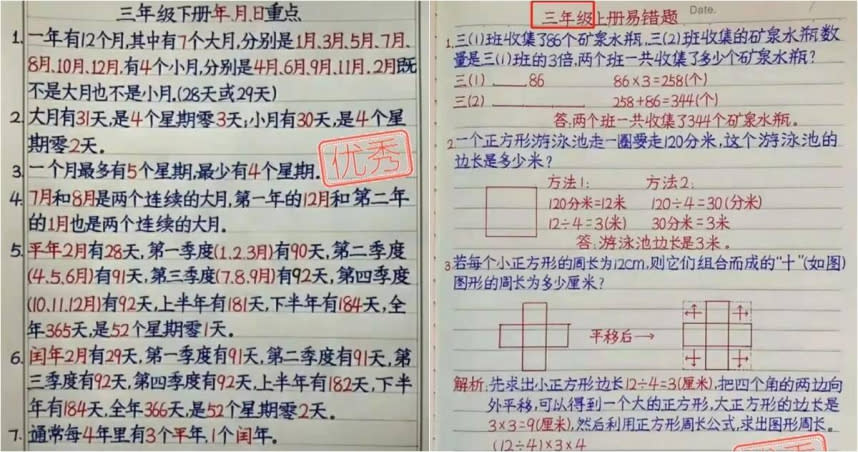 三年级下册年、月、日重点
1. 一年有12个月,其中有7个大月,分别是1月、3月、5月、7月、
8月、10月、12月,有4个小月,分别是4月、6月、9月、11月,2月既
不是大月也不是小月。(28天或29天)
2. 大月有31天,是4个星期零3天;小月有30天,是4个星
期零2天。
3. 一个月最多有5个星期,最少有4个星期。
优秀
4. 7月和8月是两个连续的大月,第一年的12月和第二年
的1月也是两个连续的大月。
5. 平年2月有28天,第一季度(1.2.3月)有90天,第二季度
(4.5.6月)有91天,第三季度(7.8.9月)有92天,第四季度
(10.11.12月)有92天,上半年有181天,下半年有184天,全
年365天,是52个星期零1天。
6. 闰年2月有29天,第一季度有91天,第二季度有91天,第
三季度有92天,第四季度有92天,上半年有182天,下半
年有184天,全年366天,是52个星期零2天。
7. 通常每4年里有3个平年,1个闰年。
Date.
三年级上册易错题
1. 三(1)班收集了86个矿泉水瓶,三(2)班收集的矿泉水瓶数
量是三(1)班的3倍,两个班一共收集了多少个矿泉水瓶?
三(1) 86 86×3=258(个)
三(2) 258+86=344(个)
答:两个班一共收集了344个矿泉水瓶。
2. 一个正方形游泳池走一圈要走120分米,这个游泳池的
边长是多少米?
方法1: 方法2:
120分米=12米 120÷4=30(分米)
12÷4=3(米) 30分米=3米
答:游泳池边长是3米。
3. 若每个小正方形的周长为12cm,则它们组合而成的“十”(如图)
图形的周长为多少厘米?
平移后→
解析:先求出小正方形边长12÷4=3(厘米),把四个角的两边向
外平移,可以得到一个大的正方形,大正方形的边长是
3×3=9(厘米),然后利用正方形周长公式,求出图形周长。
(12÷4)×3×4